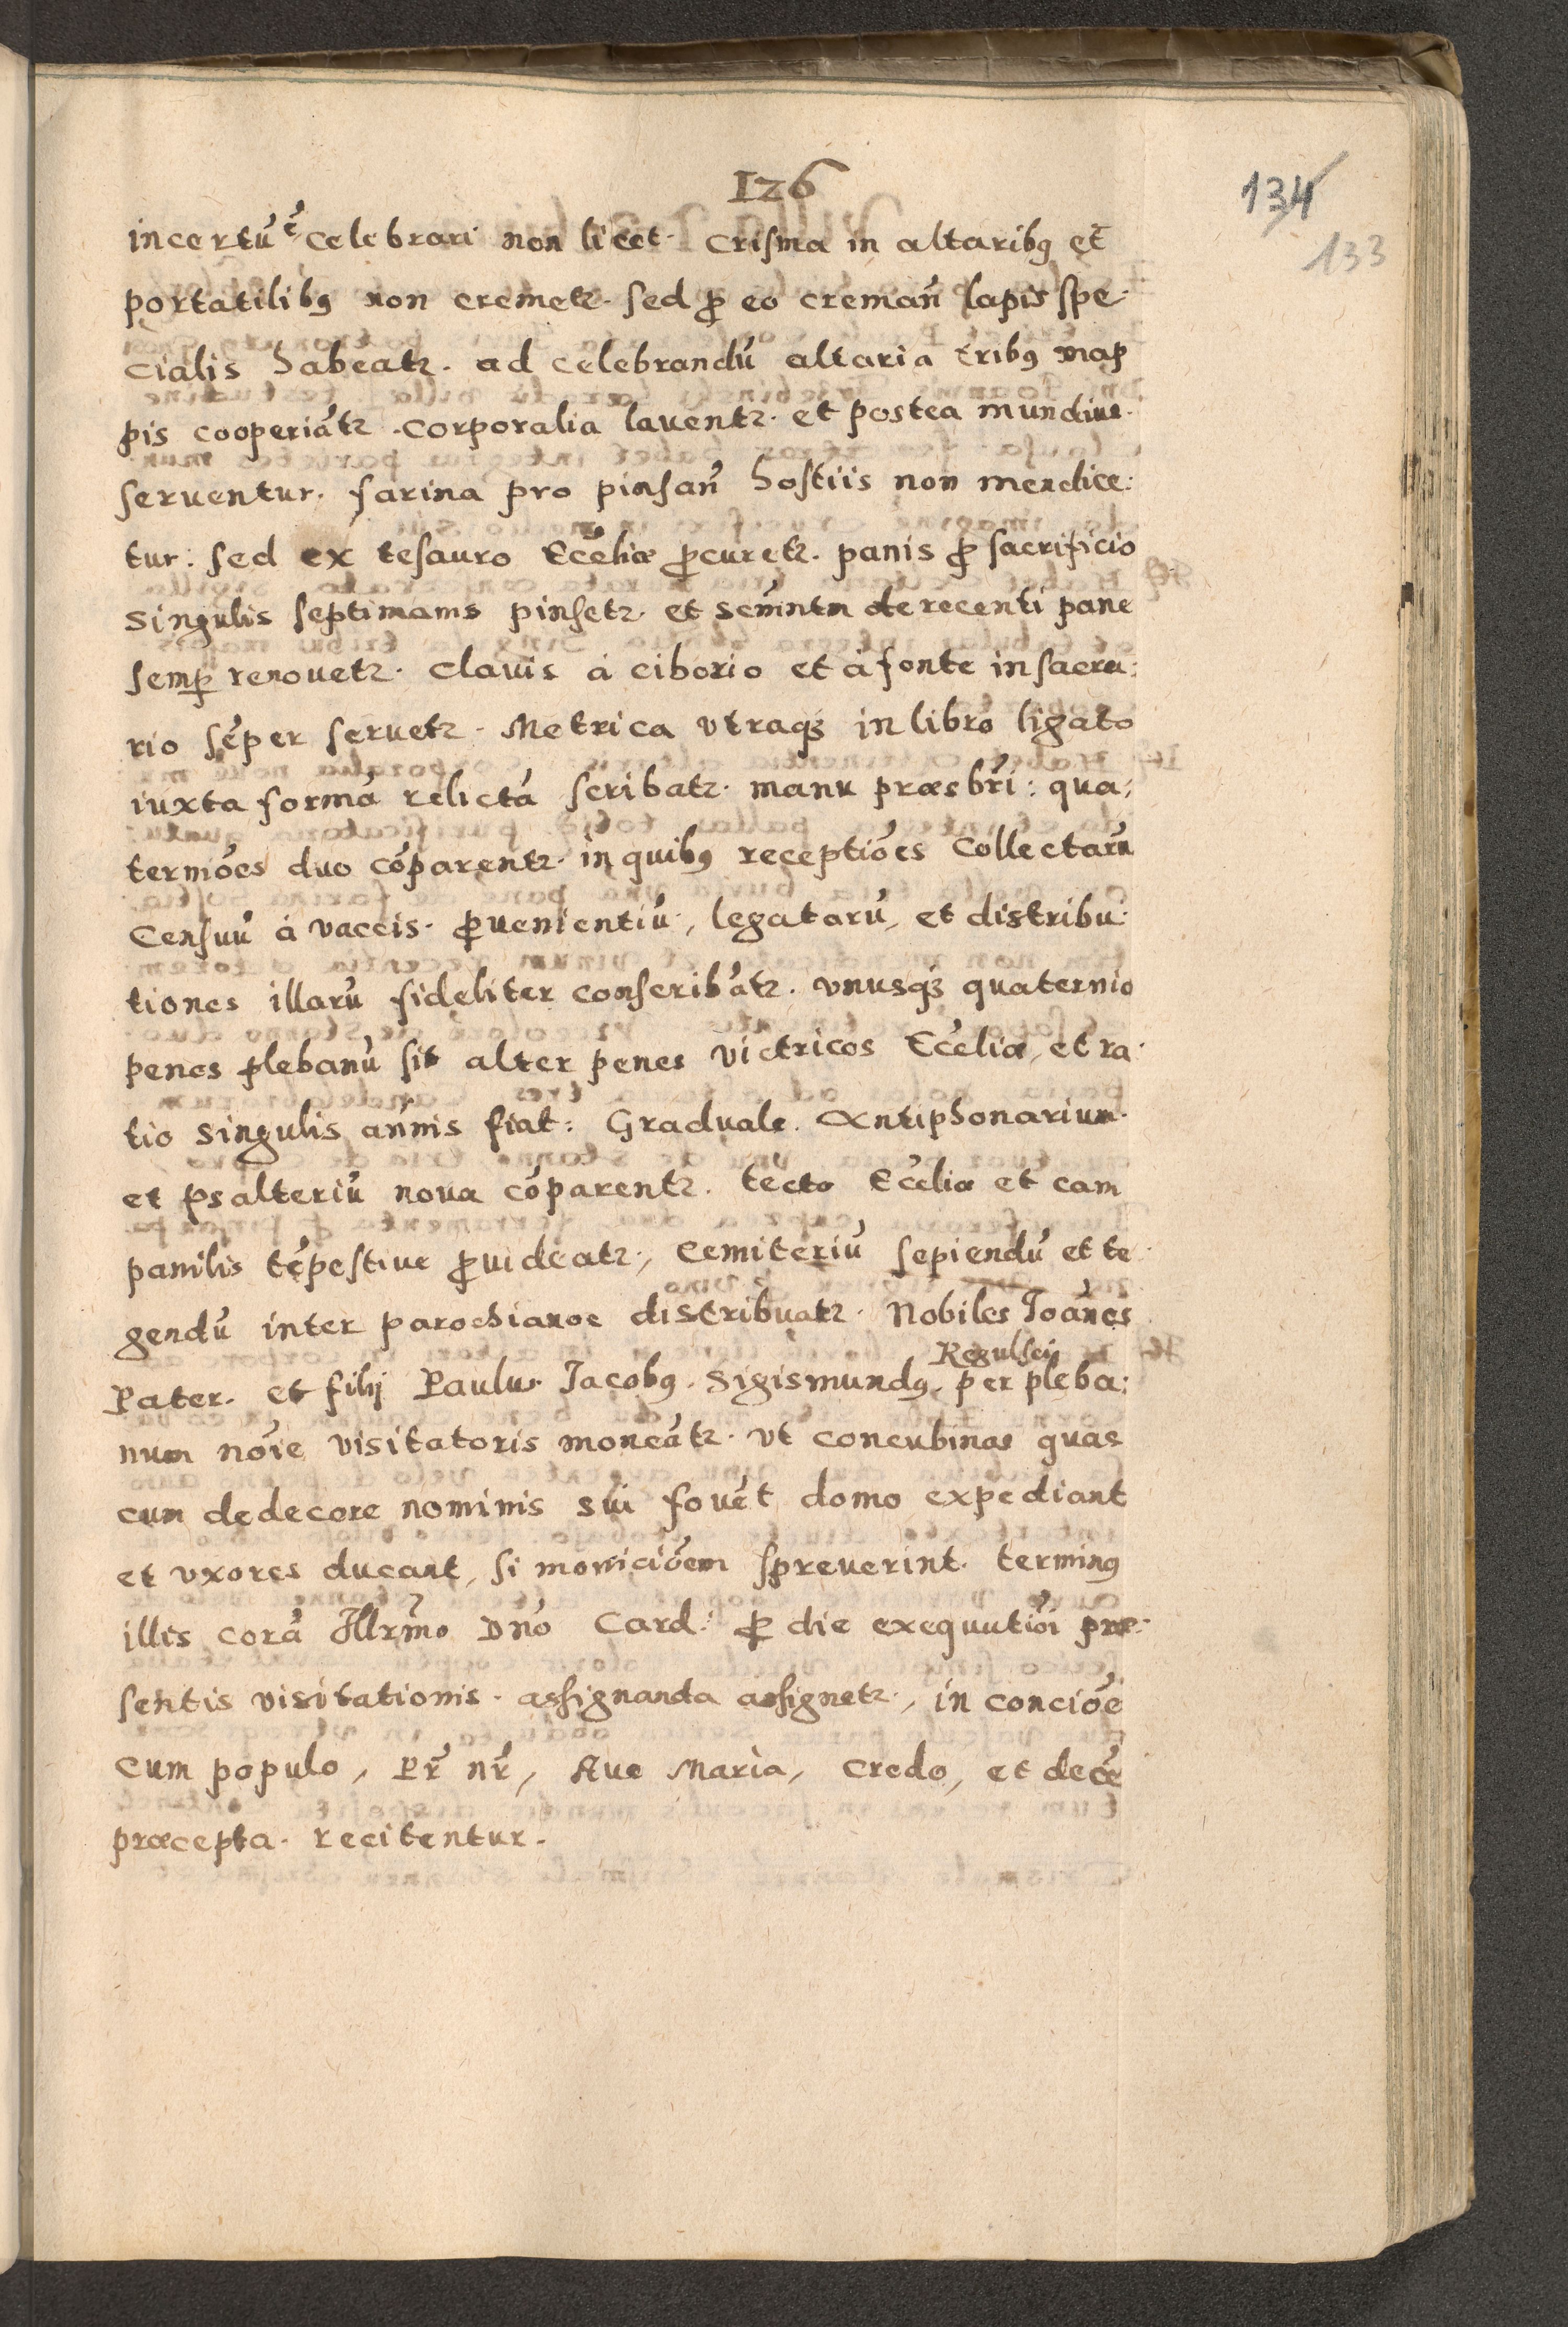 126
134
133
incertū ē celebrari non licet. Crisma in altaribꝰ et
portatilibꝰ non cremetr. sed ꝓ eo cremañ lapis spe-
cialis habeatr. ad celebrandū altaria tribꝰ map
pis cooperiātr. corporalia lauentr. et postea mundius
seruentur. farina pro pinsañ hostiis non mendice:
tur: sed ex tesauro Eccliæ ꝓcuretr. panis ꝓ sacrificio
singulis septimanis pinsetr. et scm̃ntm de recenti pane
semꝑ renouetr. clauis à ciborio et à fonte in sacra:
rio sēper seruetr. Metrica vtraqꝫ in libro ligato
iuxta formā relictā scribatr. manu præsbri: qua:
terniōes duo cōparentr. in quibꝰ receptiōes collectarū
Censuū à vaccis. ꝓuenientiū, legatarū, et distribu:
tiones illarū fideliter conseribātr. vnusqꝫ quaternio
penes plebanū sit alter penes victricos Eccliæ, et ra:
tio singulis annis fiat: Graduale. Antiphonarium.
et psalteriū noua cōparentr. tecto Eccliæ et cam
panilis tēpestiue ꝓuideatr., Cemiteriū sepiendū et te-
gendū inter parochianos distribuatr. Nobiles Joānes
Regulsci
Pater. et filij Paulus Jacobꝰ. Sigismundꝰ. per pleba:
num nōie visitatoris moneātr. vt concubinas quas
cum dedecore nominis sui fouēt domo expediant
et vxores ducant, si moniciōem spreuerint. terminꝰ
illis corā Illrm̃o Dno Card: ꝓ die exequutiōi præ-
sentis visitationis. assignanda assignetr., in conciōe
cum populo, Pr̃ nr̃, Aue Maria, Credo, et decē
præcepta. recitentur.